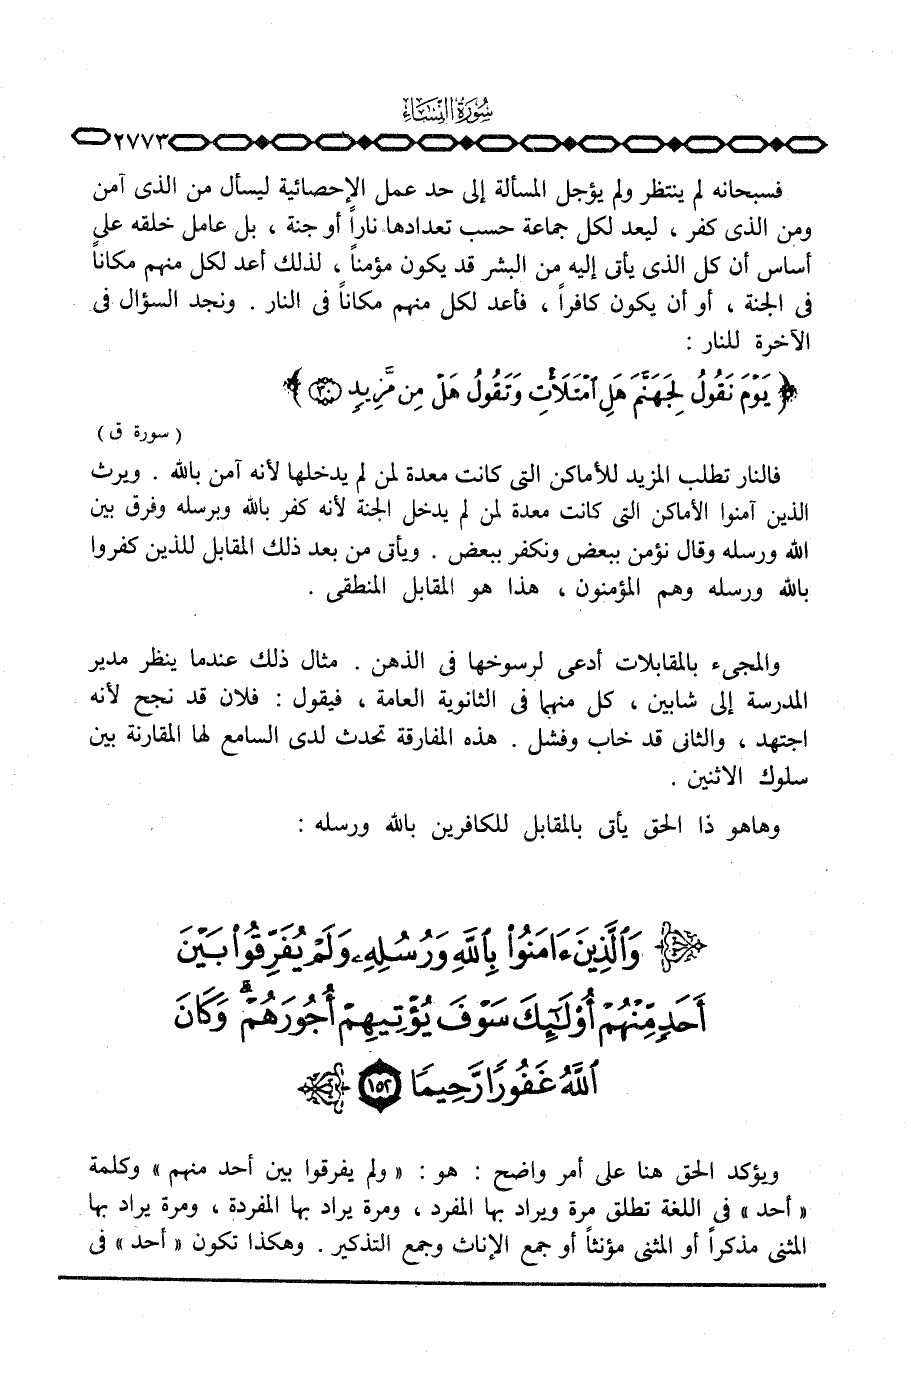 سُورَةُ النِّسَاءِ
٢٧٧٣
فسبحانه لم ينتظر ولم يؤجل المسألة إلى حد عمل الإحصائية ليسأل من الذى آمن
ومن الذى كفر ، ليعد لكل جماعة حسب تعدادها ناراً أو جنة ، بل عامل خلقه على
أساس أن كل الذى يأتى إليه من البشر قد يكون مؤمناً ، لذلك أعد لكل منهم مكاناً
فى الجنة ، أو أن يكون كافراً ، فأعد لكل منهم مكاناً فى النار . ونجد السؤال فى
الآخرة للنار :
﴿ يَوْمَ نَقُولُ لِجَهَنَّمَ هَلِ ٱمْتَلَأْتِ وَتَقُولُ هَلْ مِن مَّزِيدٍ ٣٠ ﴾
( سورة ق )
فالنار تطلب المزيد للأماكن التى كانت معدة لمن لم يدخلها لأنه آمن بالله . ويرث
الذين آمنوا الأماكن التى كانت معدة لمن لم يدخل الجنة لأنه كفر بالله وبرسله وفرق بين
الله ورسله وقال نؤمن ببعض ونكفر ببعض . ويأتى من بعد ذلك المقابل للذين كفروا
بالله ورسله وهم المؤمنون ، هذا هو المقابل المنطقى .
والمجىء بالمقابلات أدعى لرسوخها فى الذهن . مثال ذلك عندما ينظر مدير
المدرسة إلى شابين ، كل منهما فى الثانوية العامة ، فيقول : فلان قد نجح لأنه
اجتهد ، والثانى قد خاب وفشل . هذه المفارقة تحدث لدى السامع لها المقارنة بين
سلوك الاثنين .
وهاهو ذا الحق يأتى بالمقابل للكافرين بالله ورسله :
وَٱلَّذِينَ ءَامَنُوا۟ بِٱللَّهِ وَرُسُلِهِۦ وَلَمْ يُفَرِّقُوا۟ بَيْنَ
أَحَدٍ مِّنْهُمْ أُو۟لَٰٓئِكَ سَوْفَ يُؤْتِيهِمْ أُجُورَهُمْ ۗ وَكَانَ
ٱللَّهُ غَفُورًا رَّحِيمًا ١٥٢
ويؤكد الحق هنا على أمر واضح : هو : « ولم يفرقوا بين أحد منهم » وكلمة
« أحد » فى اللغة تطلق مرة ويراد بها المفرد ، ومرة يراد بها المفردة ، ومرة يراد بها
المثنى مذكراً أو المثنى مؤنثاً أو جمع الإناث وجمع التذكير . وهكذا تكون « أحد » فى